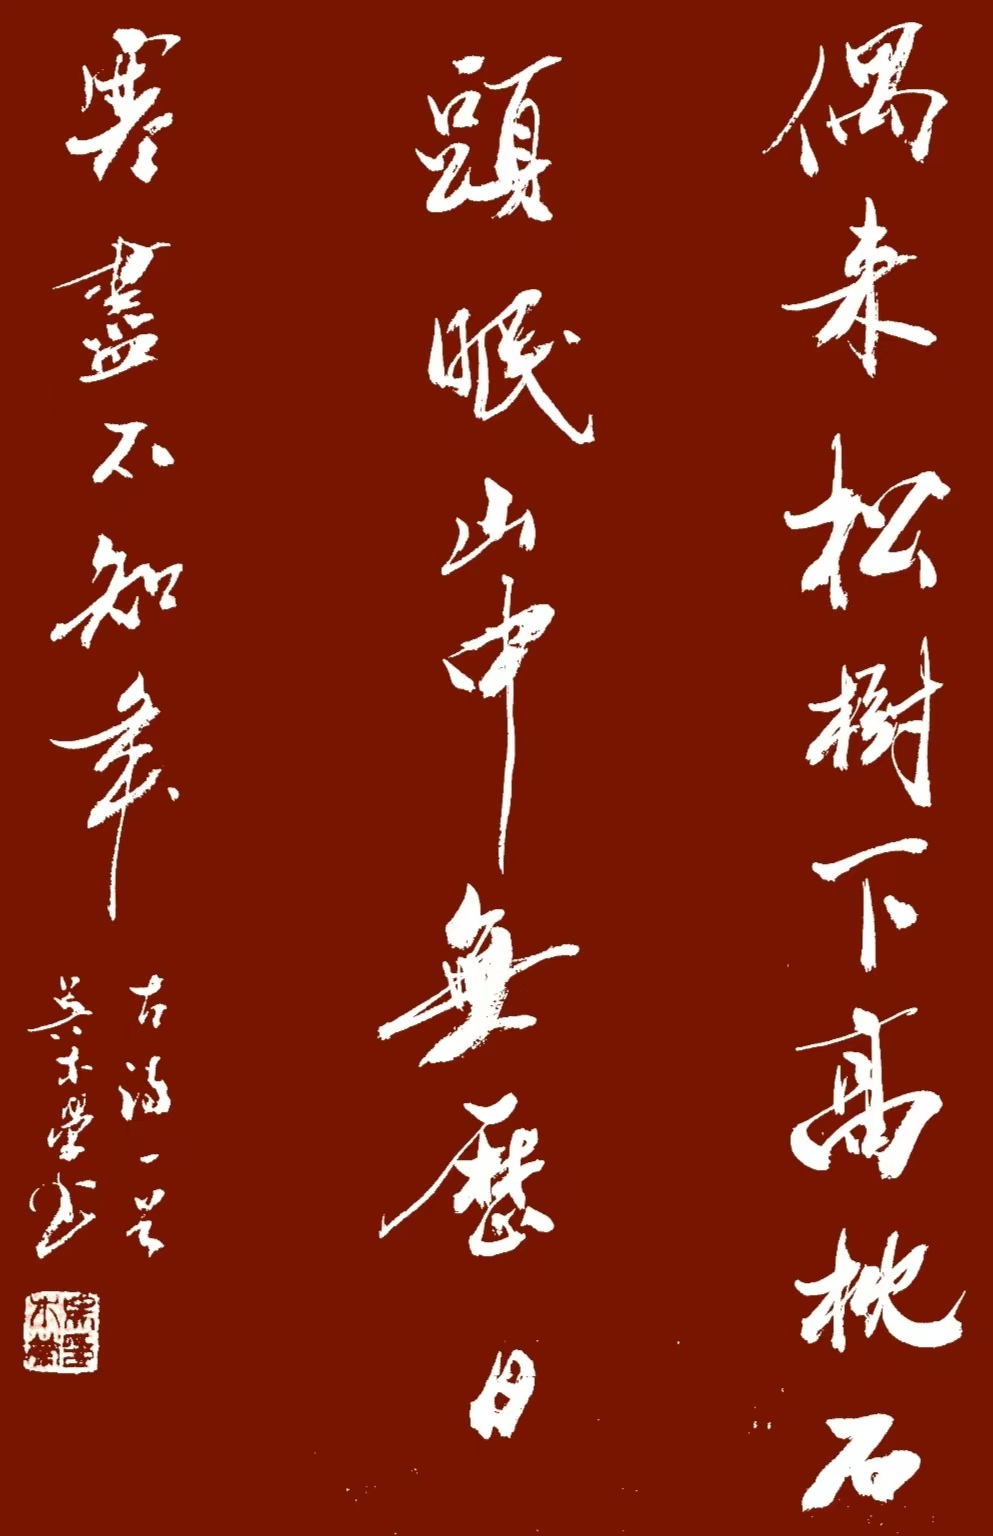 偶来松樹下高枕石
頭眠山中無歷日
寒盡不知年
古詩一首
吴木學书